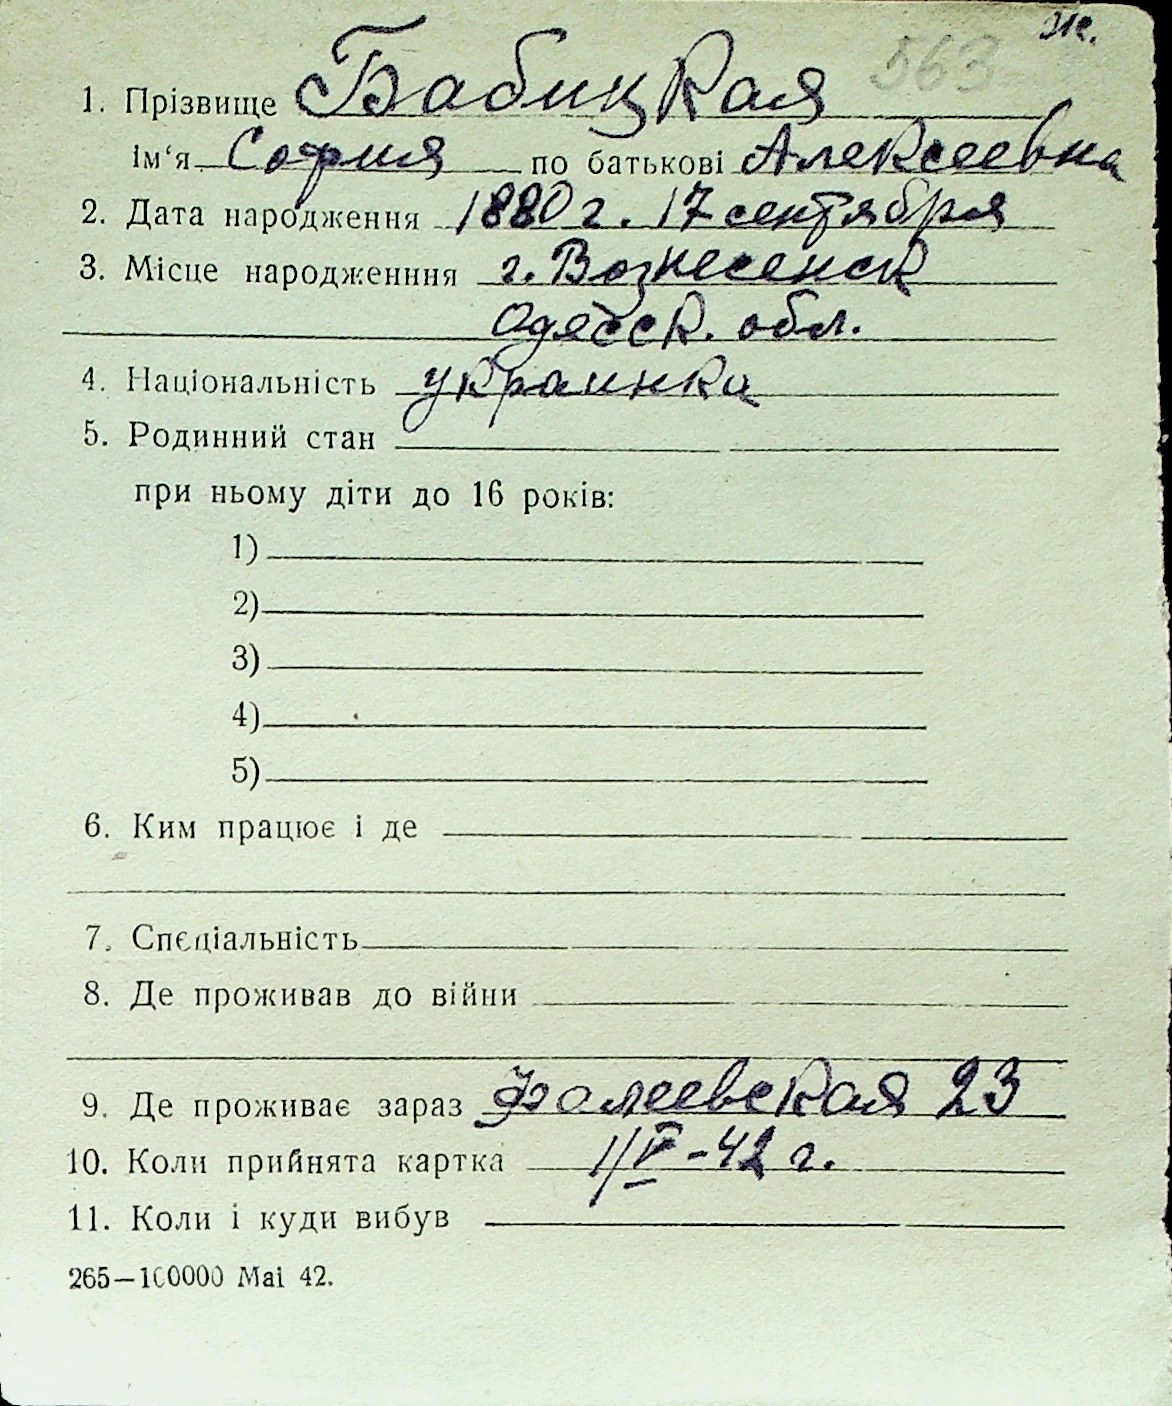 563
1. Прізвище Бабицкая
ім'я София по батькові Алексеевна
2. Дата народження 1880 г. 17 сентября
3. Місце народженння г. Вознесенск
Одесск. обл.
4. Національність украинка
5. Родинний стан
при ньому діти до 16 років:
1)
2)
3)
4)
5)
6. Ким працює і де
7. Спеціальність
8. Де проживав до війни
9. Де проживає зараз Фалеевская 23
10. Коли прийнята картка 1/V-42 г.
11. Коли і куди вибув
265—100000 Mai 42.